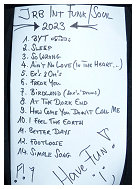 JRB INT FUNK/SOUL
2023
1. BYT
2. SLEEP
3. SO WRONG
4. AIN'T NO LOVE (IN THE HEART...)
5. EX'S & OH'S
6. TREAT YOU
7. BIRDLAND
8. AT THE DARK END
9. HOW COME YOU DON'T CALL ME
10. I FEEL THE EARTH
11. BETTER DAYS
12. FOOTLOOSE
14. SIMPLE SONG
HAVE FUN!